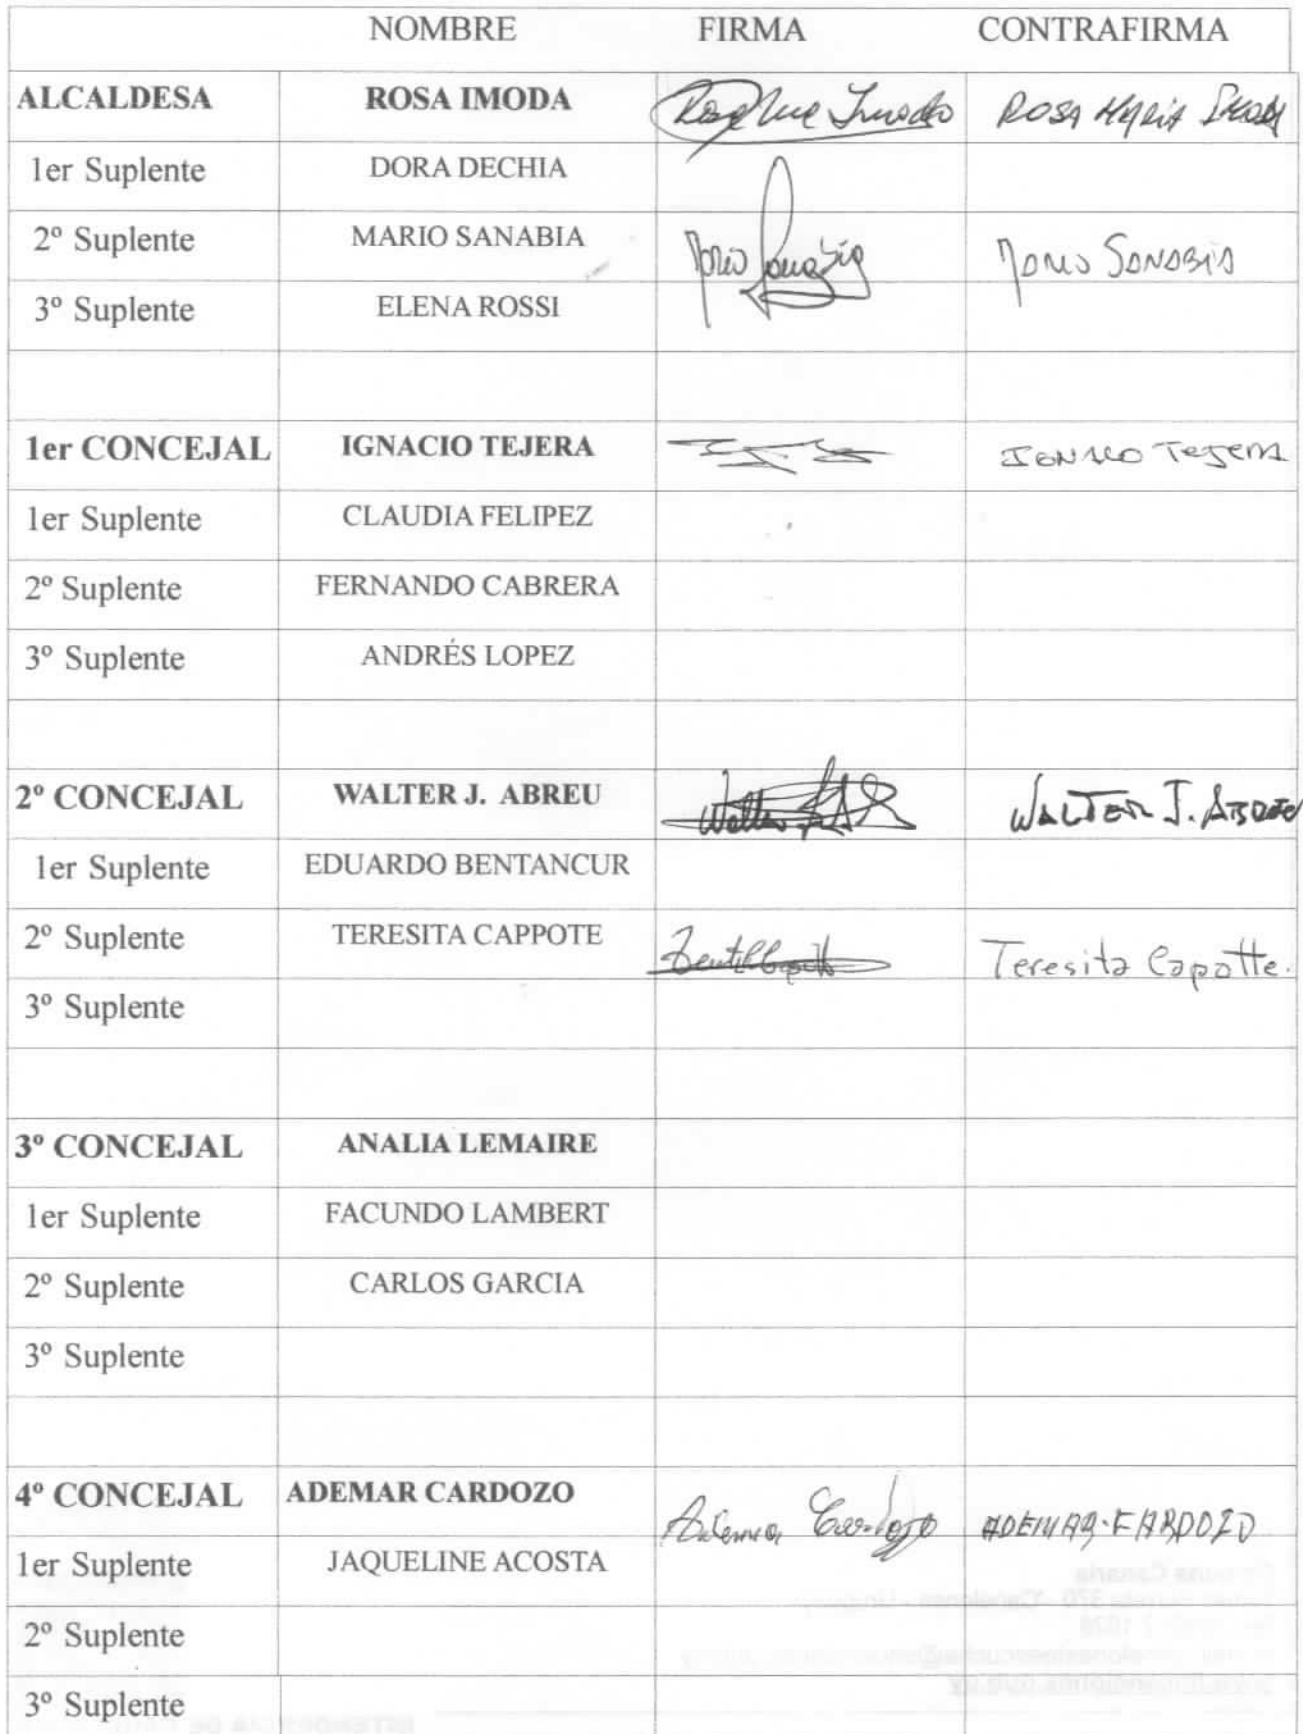 NOMBRE FIRMA CONTRAFIRMA
ALCALDESA ROSA IMODA ROSA MARIA IMODA
1er Suplente DORA DECHIA
2º Suplente MARIO SANABIA Mario Sanabia MARIO SANABIA
3º Suplente ELENA ROSSI
1er CONCEJAL IGNACIO TEJERA IGNACIO TEJERA
1er Suplente CLAUDIA FELIPEZ
2º Suplente FERNANDO CABRERA
3º Suplente ANDRÉS LOPEZ
2º CONCEJAL WALTER J. ABREU Walter WALTER J. ABREU
1er Suplente EDUARDO BENTANCUR
2º Suplente TERESITA CAPPOTE Teresita Capotte.
3º Suplente
3º CONCEJAL ANALIA LEMAIRE
1er Suplente FACUNDO LAMBERT
2º Suplente CARLOS GARCIA
3º Suplente
4º CONCEJAL ADEMAR CARDOZO Ademar Cardozo ADEMAR CARDOZO
1er Suplente JAQUELINE ACOSTA
2º Suplente
3º Suplente